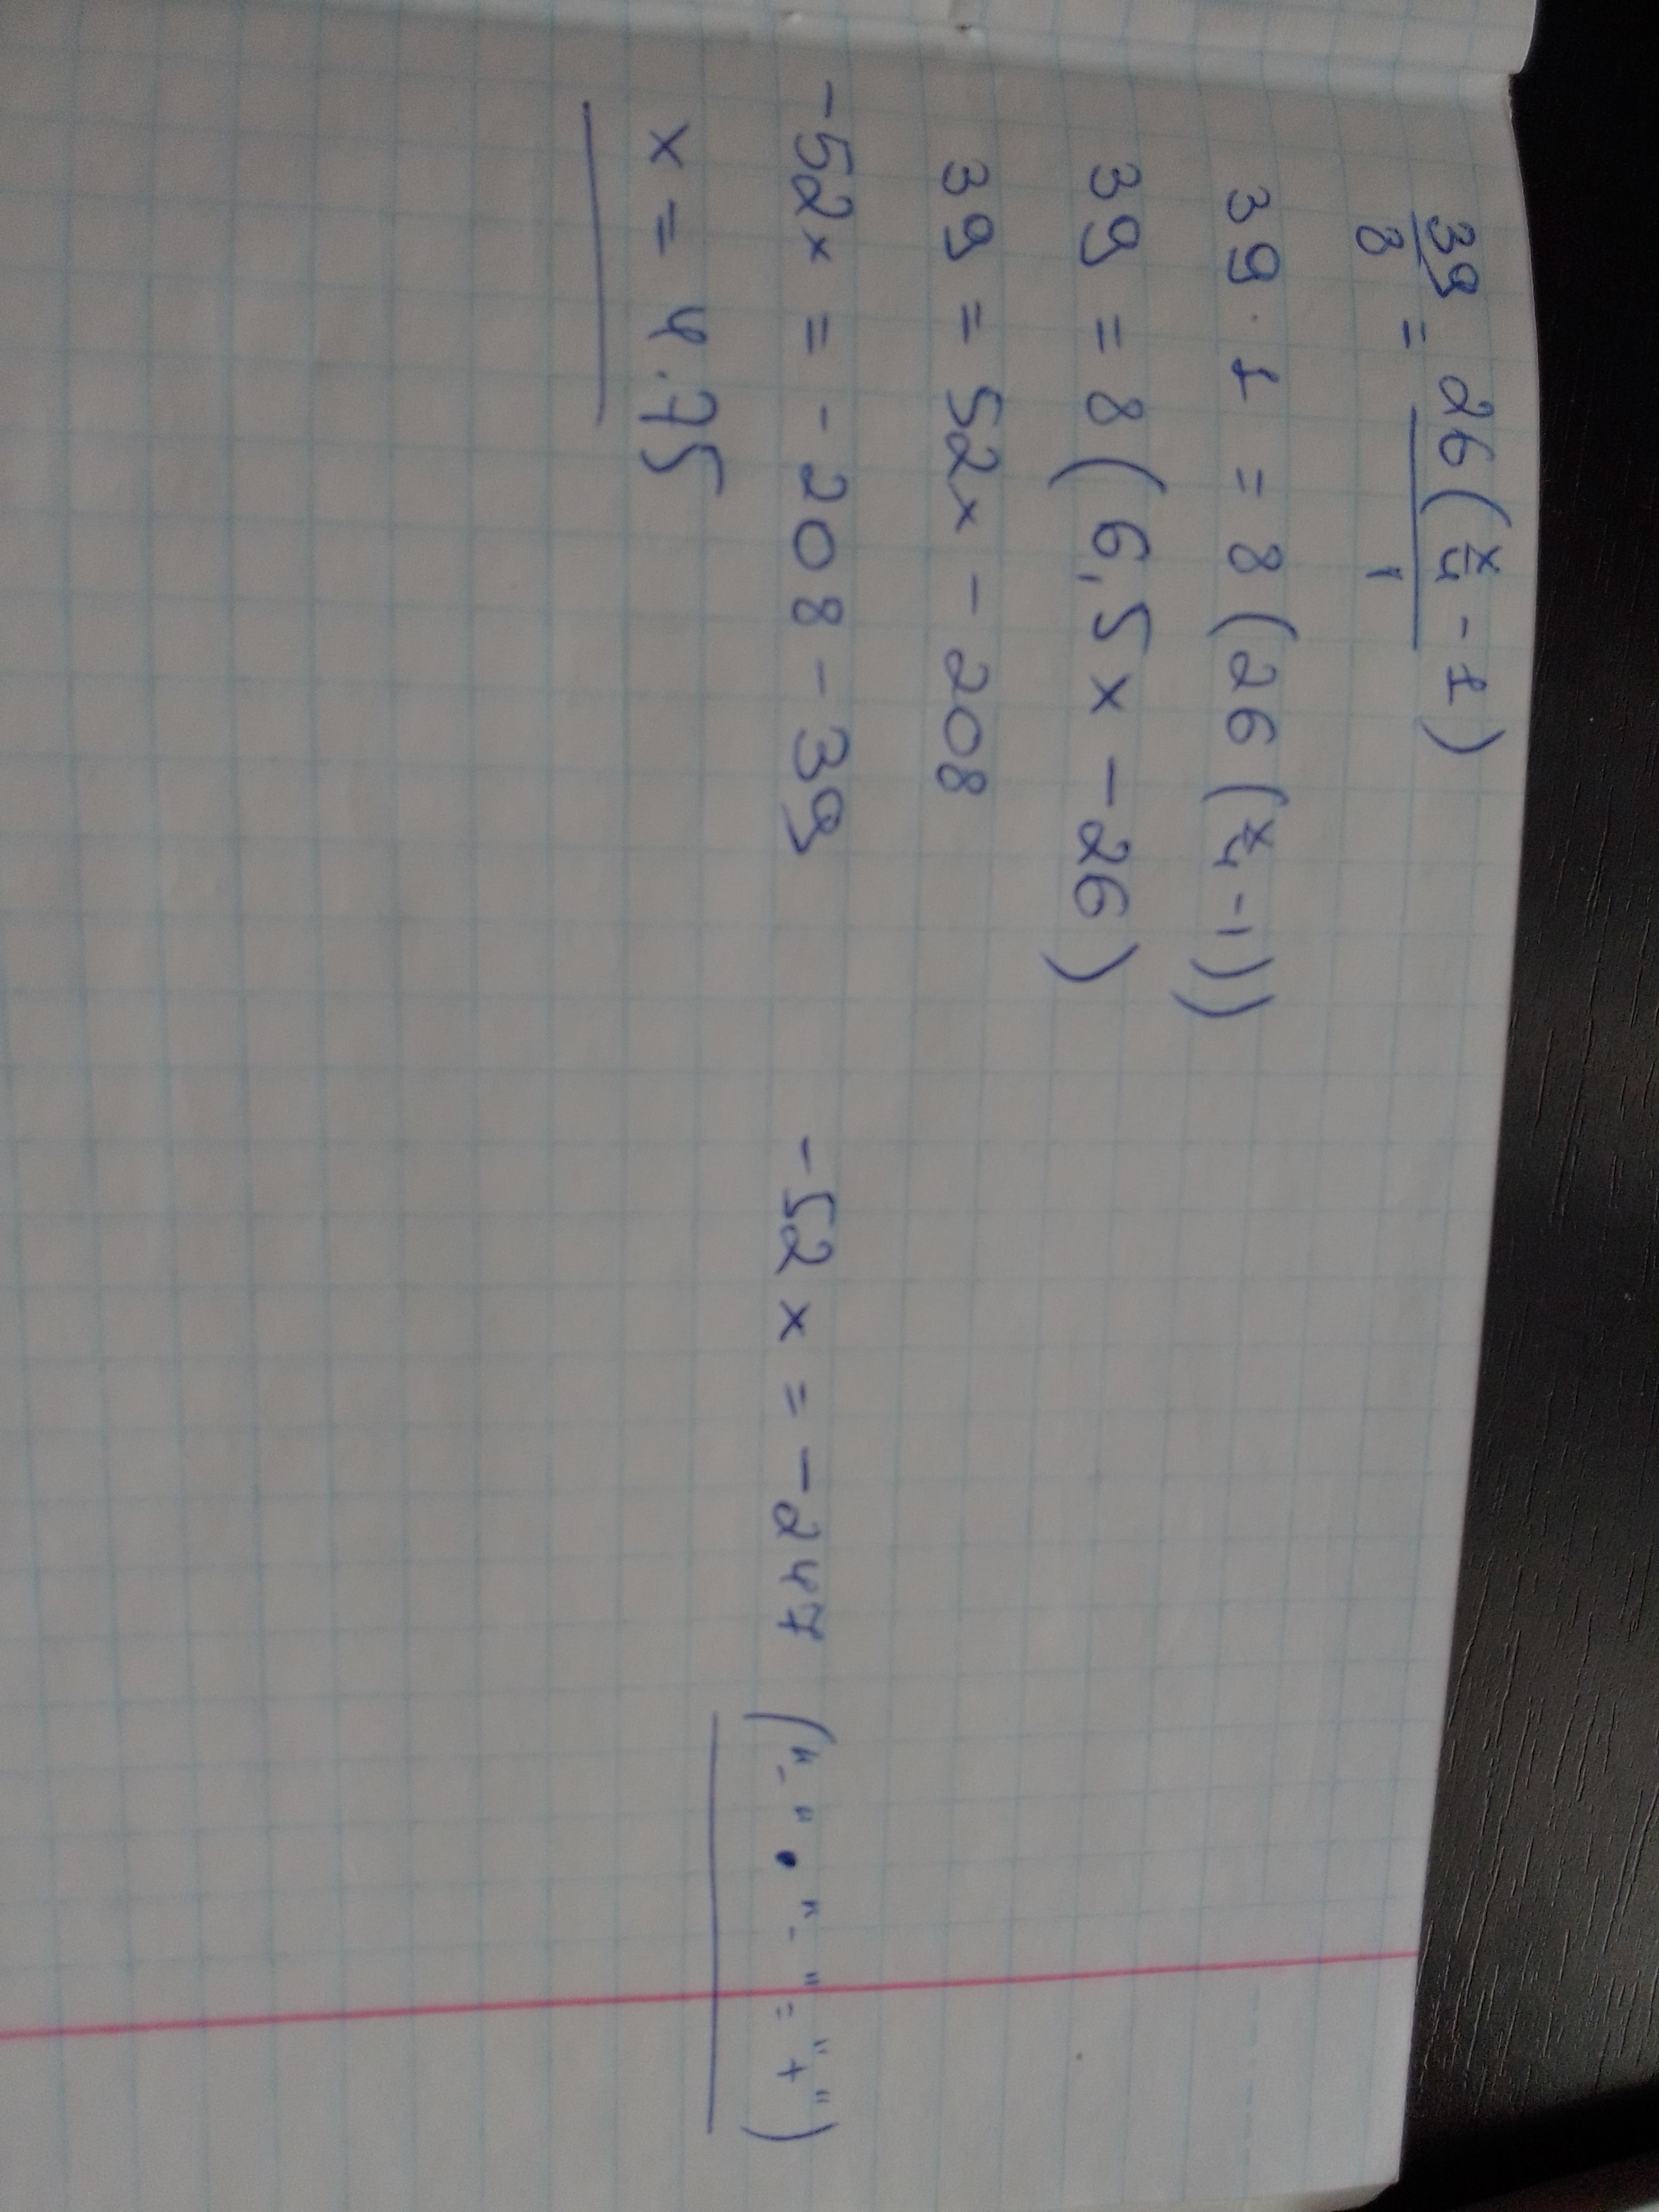 39/8 = 26(x/4 - 1)/1
39 · 1 = 8(26(x/4 - 1))
39 = 8(6,5x - 26)
39 = 52x - 208
-52x = -208 - 39 -52x = -247 ("-" · "-" = "+")
x = 4.75